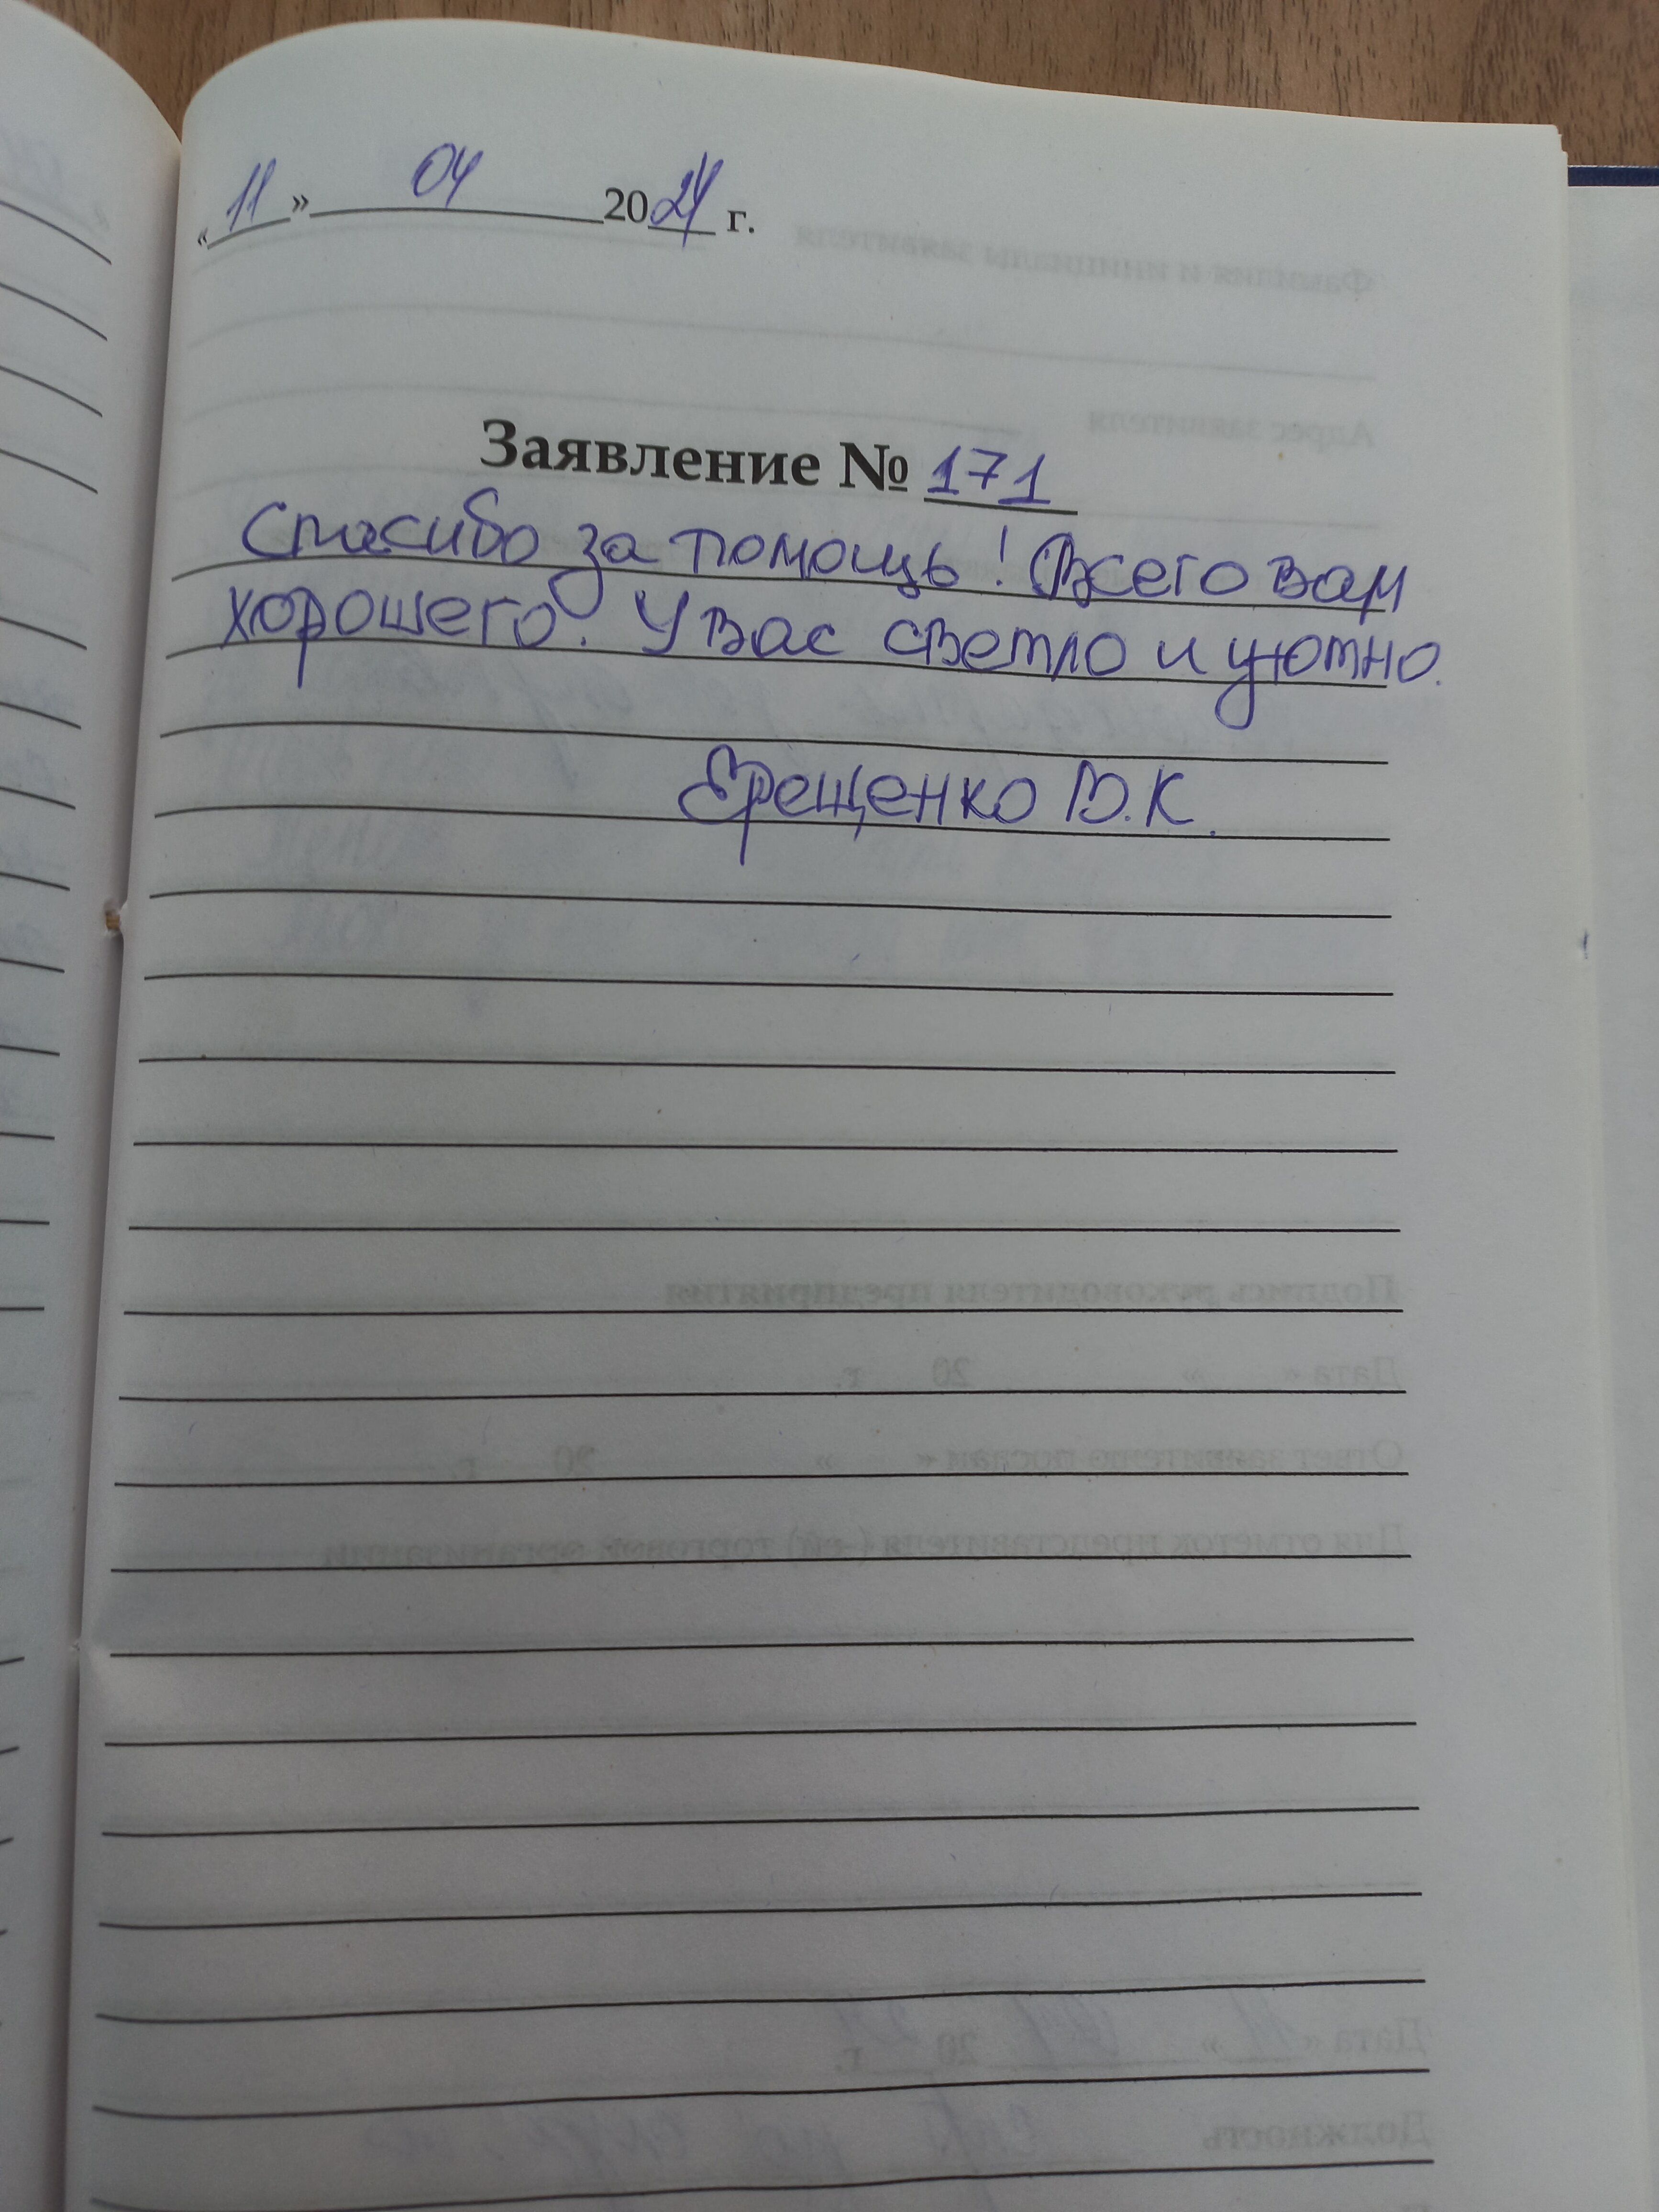 «11» 04 2024 г.
Заявление № 171
Спасибо за помощь! Всего вам
хорошего. У вас светло и уютно.
Ерещенко В.К.